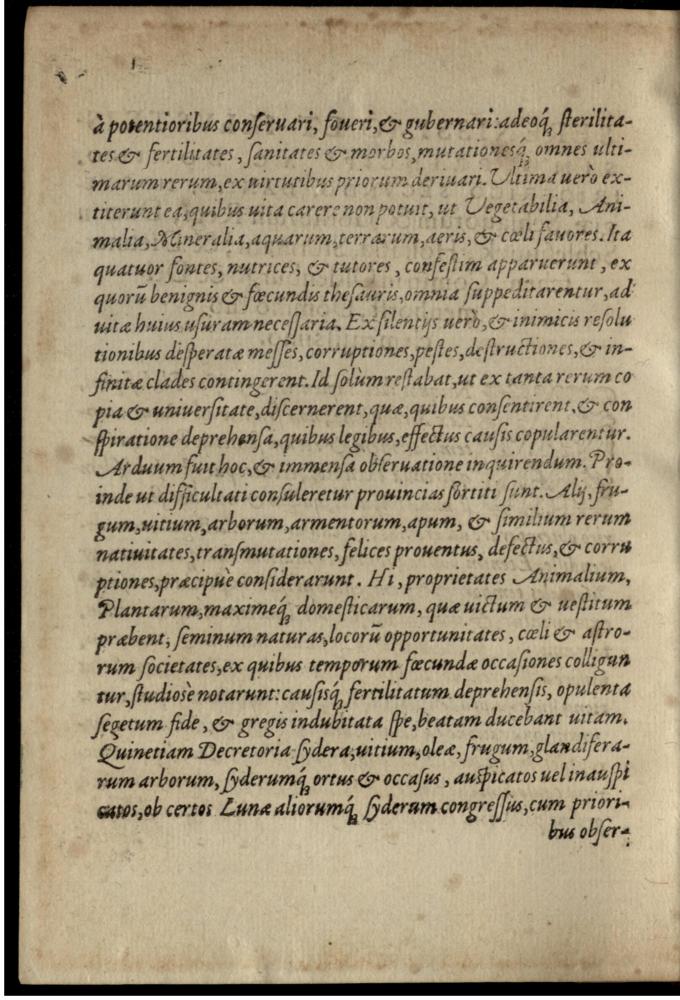 à potentioribus conſeruari, foueri, & gubernari: adeoq́; ſterilita-
tes & fertilitates, ſanitates & morbos, mutationesq́; omnes ulti-
marum rerum, ex uirtutibus priorum deriuari. Vltima uerò ex-
titerunt ea, quibus uita carere non potuit, ut Vegetabilia, Ani-
malia, Mineralia, aquarum, terrarum, aeris, & cœli fauores. Ita
quatuor fontes, nutrices, & tutores, confeſtim apparuerunt, ex
quorū benignis & fœcundis theſauris, omnia ſuppeditarentur, ad
uitæ huius uſuram neceſſaria. Ex ſilentijs uerò, & inimicis reſolu
tionibus deſperatæ meſſes, corruptiones, peſtes, deſtructiones, & in-
finitæ clades contingerent. Id ſolùm reſtabat, ut ex tanta rerum co
pia & uniuerſitate, diſcernerent, quæ, quibus conſentirent, & con
ſpiratione deprehenſa, quibus legibus, effectus cauſis copularentur.
Arduum fuit hoc, & immenſa obſeruatione inquirendum. Pro-
inde ut difficultati conſuleretur prouincias ſortiti ſunt. Alij, fru-
gum, uitium, arborum, armentorum, apum, & ſimilium rerum
natiuitates, tranſmutationes, felices prouentus, defectus, & corru
ptiones, præcipuè conſiderarunt. Hi, proprietates Animalium,
Plantarum, maximeq́; domeſticarum, quæ uictum & ueſtitum
præbent, ſeminum naturas, locorū opportunitates, cœli & aſtro-
rum ſocietates, ex quibus temporum fœcundæ occaſiones colligun
tur, ſtudioſè notarunt: cauſisq́; fertilitatum deprehenſis, opulenta
ſegetum fide, & gregis indubitata ſpe, beatam ducebant uitam.
Quinetiam Decretoria ſydera, uitium, oleæ, frugum, glandifera-
rum arborum, ſyderumq́; ortus & occaſus, auſpicatos uel inauſpi
catos, ob certos Lunæ aliorumq́; ſyderum congreſſus, cum priori-
bus obſer-